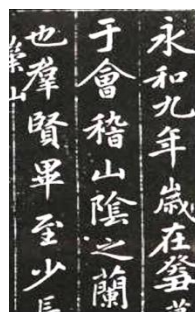 永和九年歲在癸
于會稽山陰之蘭
也羣賢畢至少長